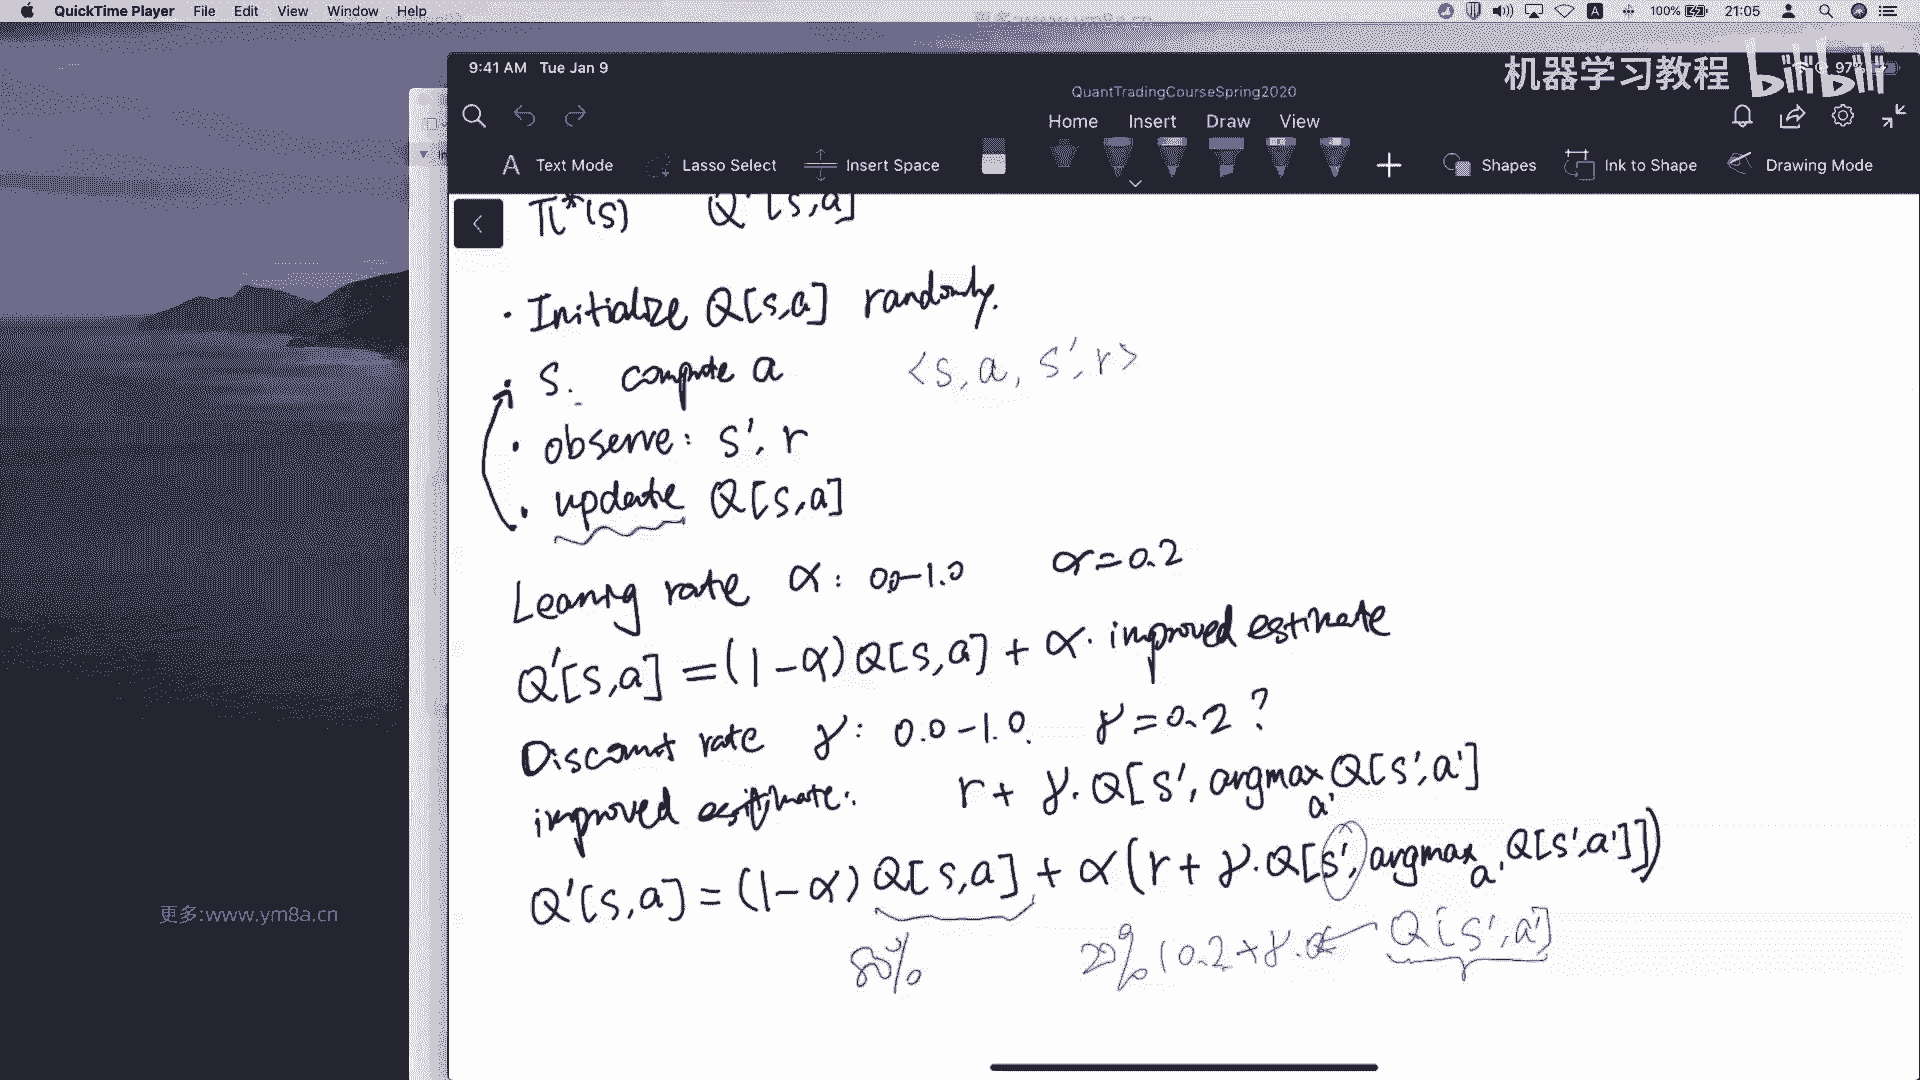 QuickTime Player File Edit View Window Help 100% 21:05
9:41 AM Tue Jan 9 97%
机器学习教程 bilibili
QuantTradingCourseSpring2020
Home Insert Draw View
Text Mode Lasso Select Insert Space Shapes Ink to Shape Drawing Mode
π*(s) Q*[s,a]
· Initialize Q[s,a] randomly.
· s. compute a <s, a, s', r>
· observe: s', r
· update Q[s,a]
Learning rate α: 0.0-1.0 α=0.2
Q'[s,a] = (1-α)Q[s,a] + α· improved estimate
Discount rate γ: 0.0-1.0. γ=0.2?
improved estimate: r + γ· Q[s', argmax a' Q[s',a']
Q'[s,a] = (1-α) Q[s,a] + α(r + γ·Q[s', argmax a' Q[s',a']])
80% 20% (0.2+γ· Q[s',a']
更多:www.ym8a.cn